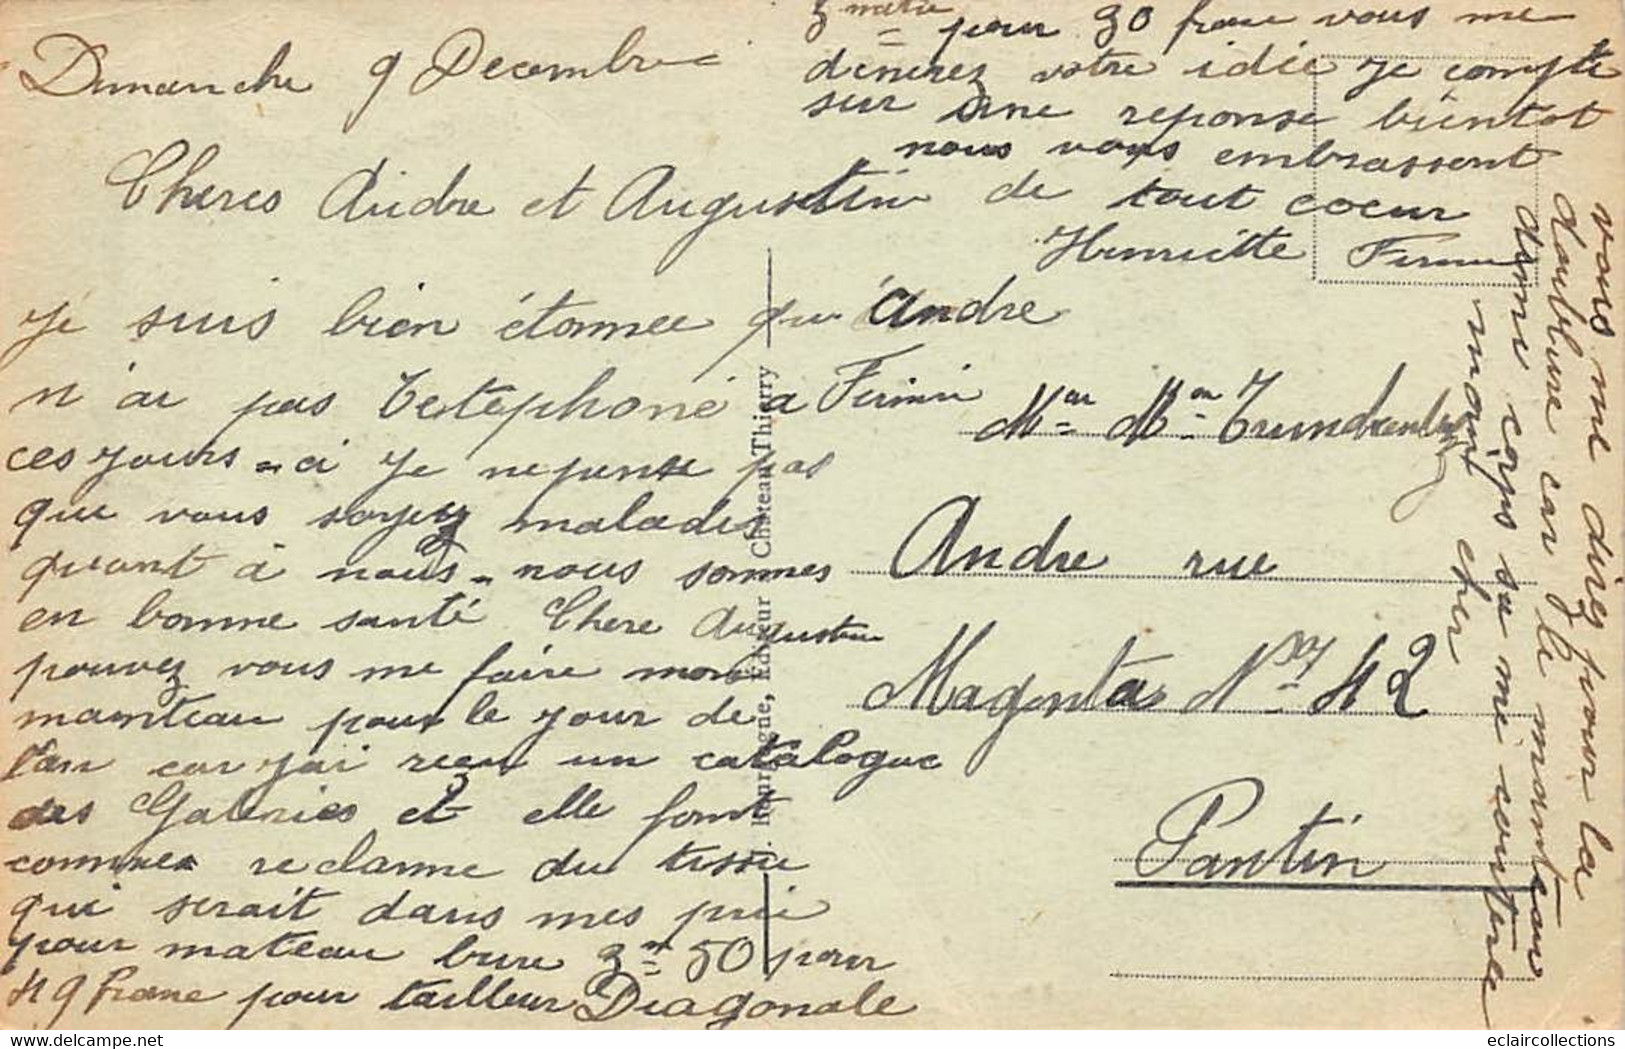 Dimanche 9 Decembre
Cheres Andre et Augustine
Je suis bien étonnee que Andre
n'ai pas Tetephoné a Firmin
ces jours-ci je ne pense pas
que vous soyez malades
quant à nous, nous sommes
en bonne santé Chere Augustine
pouvez vous me faire mon
mamteau pour le jour de
l'an car j'ai reçu un catalogue
des Galeries et elle font
comme reclame du tissu
qui serait dans mes prix
pour mateau bure 3m 50 pour
49 franc pour tailleur Diagonale
3 metre
pour 30 franc vous me
denerez votre idée je compte
sur une reponse bientot
nous vous embrassent
de tout coeur
Henriette Firmin
vous me direz pour la
doublure car le manteau
demi corps sa me coutere
moins cher
Mr Mme
Andre rue
Magenta No 42
Pantin
Éditeur Château-Thierry
eclaircollections